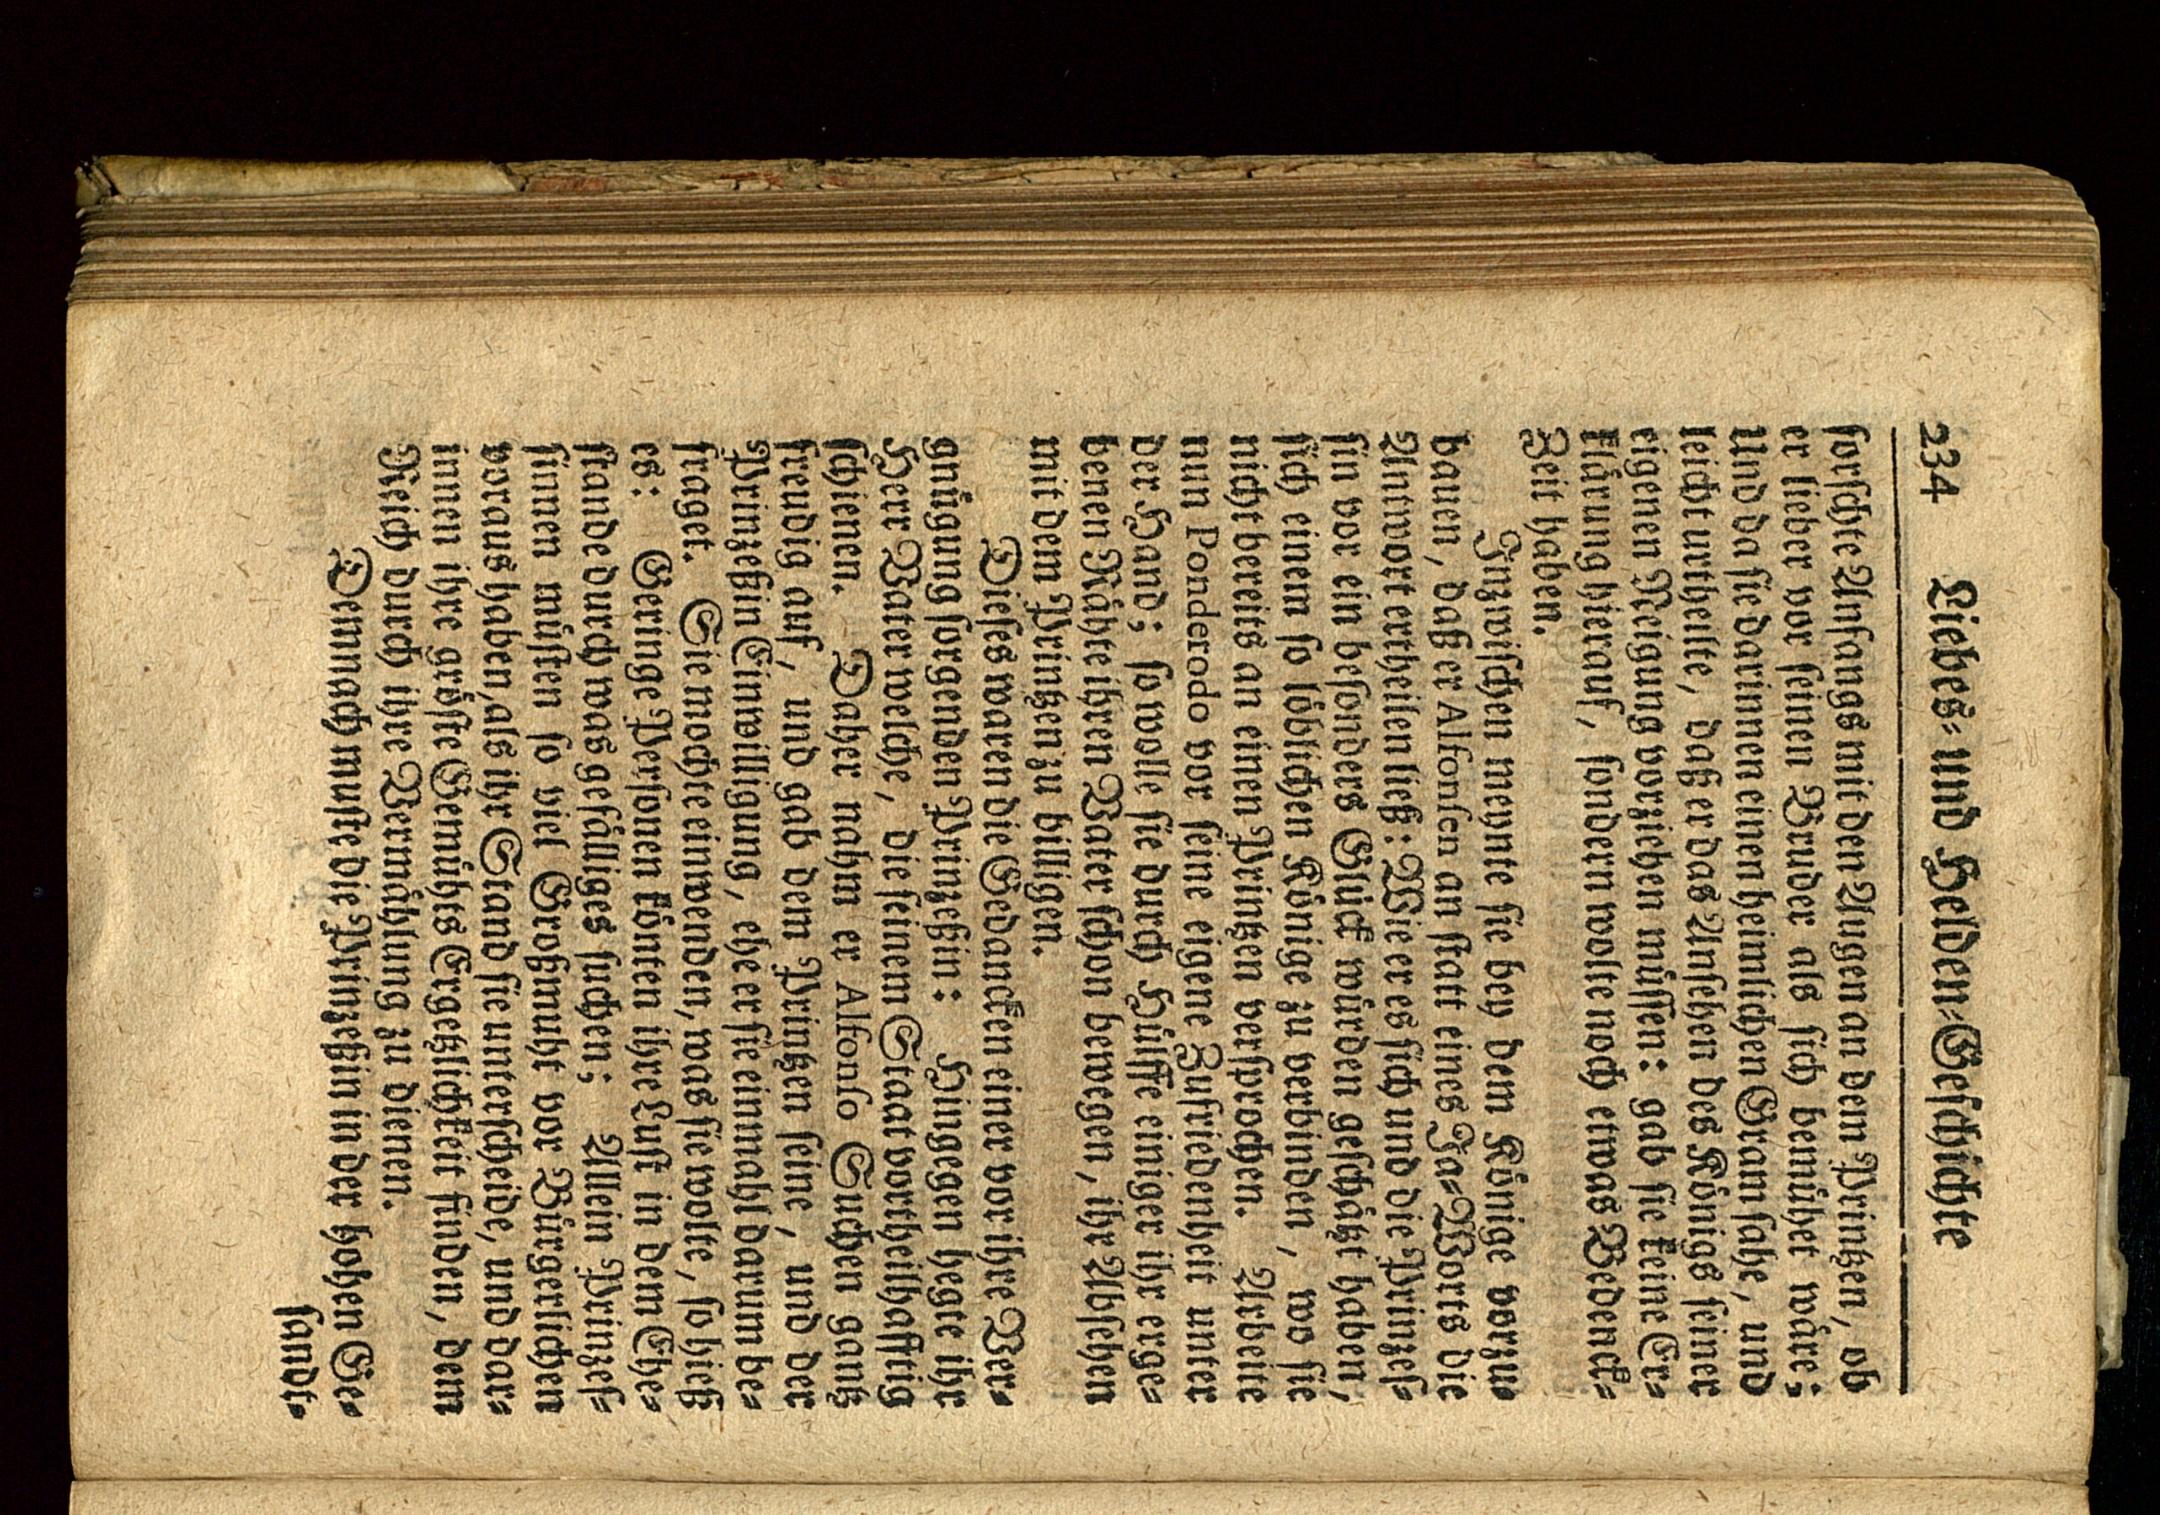 234 Liebes- und Helden-Geschichte
forschte Anfangs mit den Augen an dem Printzen, ob
er lieber vor seinen Bruder als sich bemühet wäre;
Und da sie darinnen einen heimlichen Gram sahe, und
leicht urtheilte, daß er das Ansehen des Königs seiner
eigenen Neigung vorziehen müssen: gab sie keine Er-
klärung hierauf, sondern wolte noch etwas Bedenck-
Zeit haben.
Inzwischen meynte sie bey dem Könige vorzu-
bauen, daß er Alfonsen an statt eines Ja-Worts die
Antwort ertheilen ließ: Wie er es sich und die Prinzes-
sin vor ein besonders Glück würden geschätzt haben,
sich einem so löblichen Könige zu verbinden, wo sie
nicht bereits an einen Printzen versprochen. Arbeite
nun Ponderodo vor seine eigene Zufriedenheit unter
der Hand; so wolle sie durch Hülffe einiger ihr erge-
benen Räthe ihren Vater schon bewegen, ihr Absehen
mit dem Printzen zu billigen.
Dieses waren die Gedancken einer vor ihre Ver-
gnügung sorgenden Prinzeßin: Hingegen hegte ihr
Herr Vater welche, die seinem Staat vortheilhafftig
schienen. Daher nahm er Alfonso Suchen gantz
freudig auf, und gab dem Printzen seine, und der
Prinzeßin Einwilligung, ehe er sie einmahl darum be-
fraget. Sie mochte einwenden, was sie wolte, so hieß
es: Geringe Personen könten ihre Lust in dem Ehe-
stande durch was gefälliges suchen; Allein Prinzes-
sinnen müsten so viel Großmuht vor Bürgerlichen
voraus haben, als ihr Stand sie unterscheide, und dar-
innen ihre gröste Gemühts Ergetzlichkeit finden, dem
Reich durch ihre Vermählung zu dienen.
Demnach muste die Prinzeßin in der hohen Ge-
sandt-